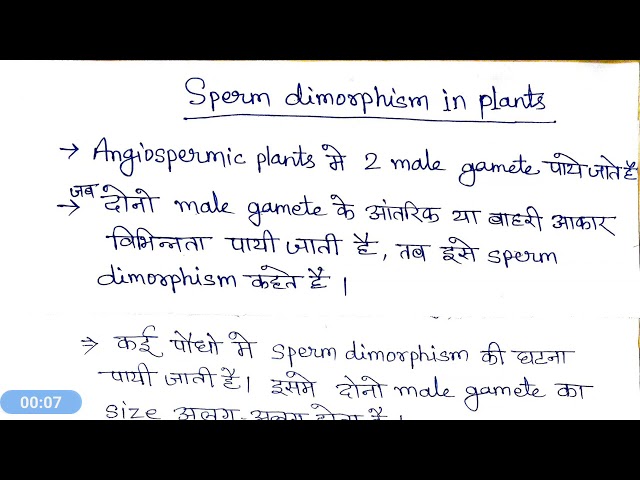 Sperm dimorphism in plants
→ Angiospermic plants मे 2 male gamete पाये जाते है
→ जब दोनो male gamete के आंतरिक या बाहरी आकार
विभिन्नता पायी जाती है, तब इसे sperm
dimorphism कहते है ।
⇒ कई पौधो मे sperm dimorphism की घटना
पायी जाती है। इसमे दोनो male gamete का
size अलग-अलग होता है ।
00:07